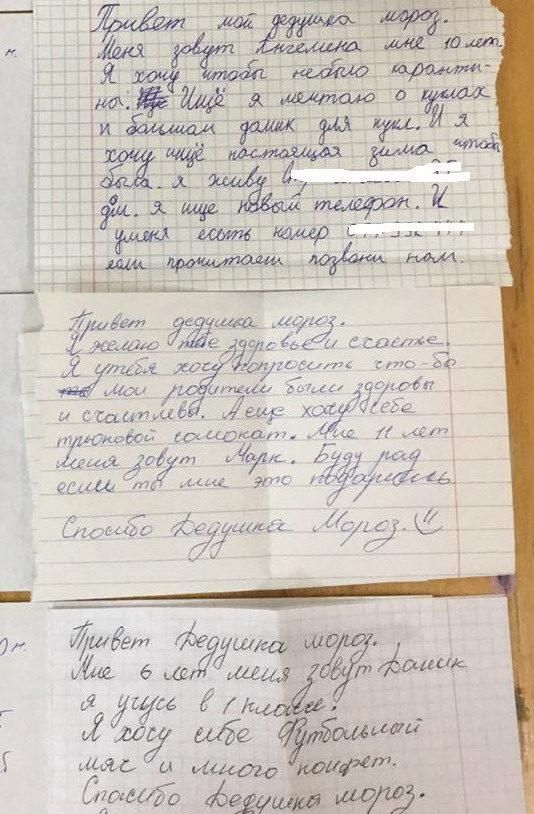 Привет мой дедушка мороз.
Меня зовут Ангелина мне 10 лет.
Я хочу чтобы небыло каранти-
на. Ищё я мечтаю о куклах
и большой домик для кукл. И я
хочу ищё настоящая зима чтобы
была. я живу
дм. я ище новый телефон. И
уменя есьть номер
если прочитаеш позвони нам.
Привет дедушка мороз.
Я желаю тебе здоровье и счастье.
Я утебя хочу попросить что-бы
мои родители были здоровы
и счастлевы. А еще хочу себе
трюковой самокат. Мне 11 лет
меня зовут Марк. Буду рад
если ты мне это подаришь
Спосибо Дедушка Мороз.
Привет Дедушка мороз.
Мне 6 лет меня зовут Даник
я учусь в 1 классе.
Я хочу себе Футбольный
мяч и много конфет.
Спосибо Дедушка мороз.